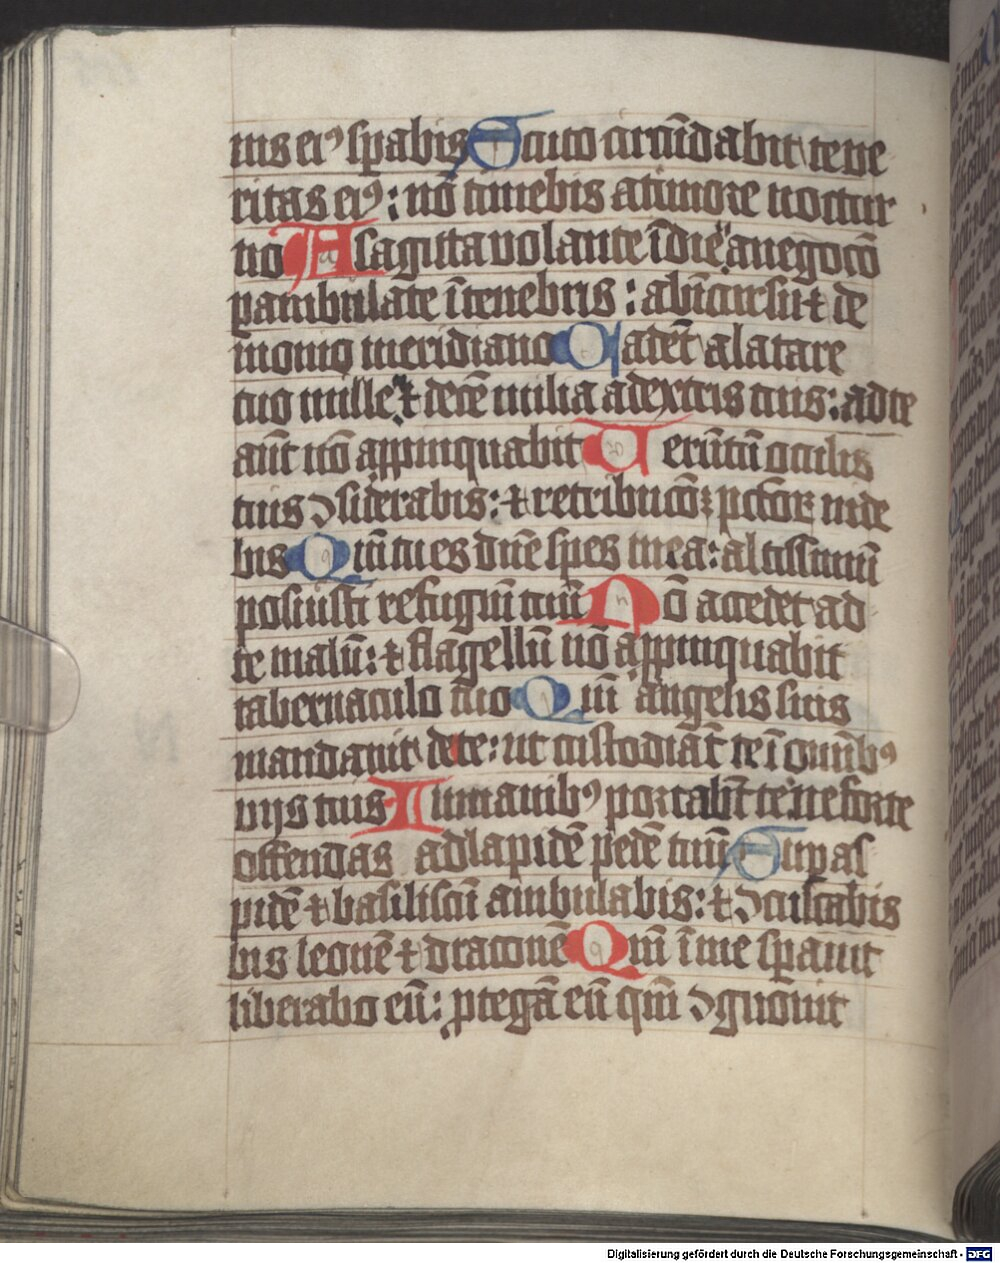 nis eiꝰ sꝑabis Scuto circūdabit te ve
ritas eiꝰ : nō timebis a timore noctur
no A sagitta volante ī die a negocō
pambulāte ī tenebris : ab īcursu ⁊ de
monio meridiano Cadēt a latere
tuo mille ⁊ decē milia a dextris tuis : ad te
aūt nō appīnquabit Verūtn̄ oculis
tuis ↄsiderabis : ⁊ retribucōꝫ pctoꝝ vide
bis Qm̄ tu es dn̄e spes mea : altissimū
posuisti refugiū tuū Nō accedet ad
te malū : ⁊ flagellū nō appinquabit
tabernaculo tuo Qm̄ angelis suis
mandauit de te : ut custodiāt te ī omībꝰ
vijs tuis In manibꝰ portabūt te ne forte
offendas ad lapidē pedē tuū Sup as
pidē ⁊ basiliscū ambulabis : ⁊ ↄculcabis
bis leonē ⁊ draconē Qm̄ ī me sꝑauit
liberabo eū : ꝓtegā eū qm̄ ↄgnouit
Digitalisierung gefördert durch die Deutsche Forschungsgemeinschaft - DFG